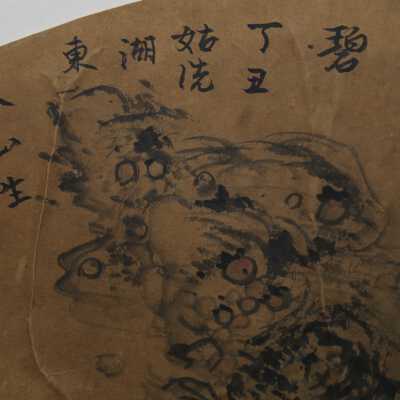 碧
丁丑
姑洗
湖
東